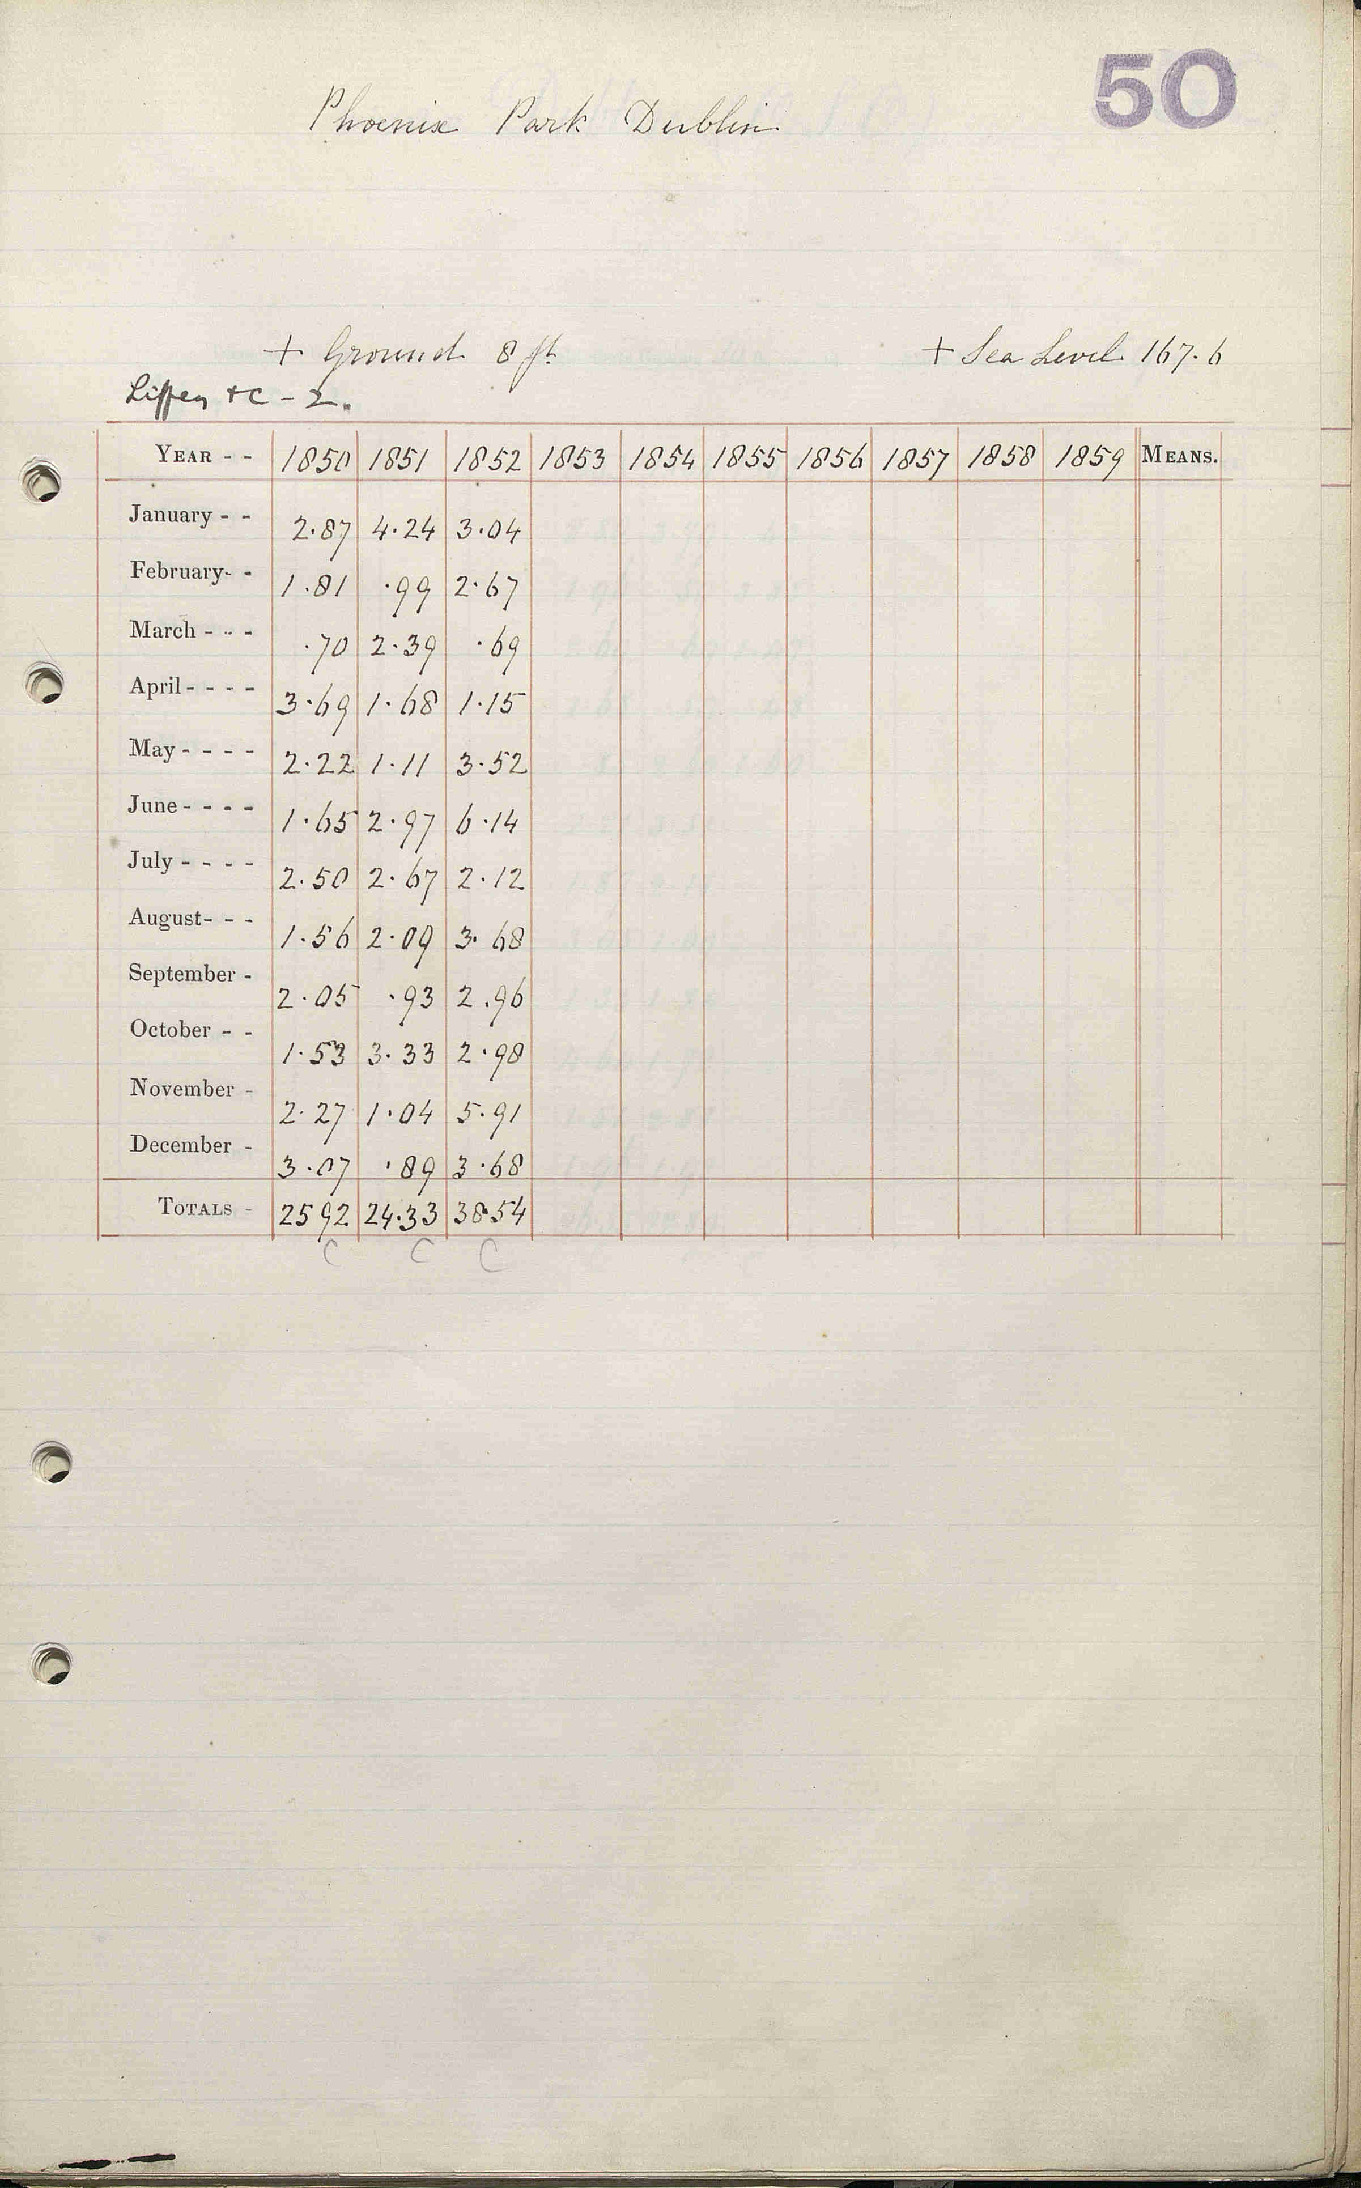 50
Phoenix Park Dublin
+ Ground 8 ft + Sea Level 167.6
Liffey &c - 2.
YEAR - - 1850 1851 1852 1853 1854 1855 1856 1857 1858 1859 MEANS.
January - - 2.87 4.24 3.04
February- - 1.81 .99 2.67
March - - - .70 2.39 .69
April - - - - 3.69 1.68 1.15
May - - - - 2.22 1.11 3.52
June - - - - 1.65 2.97 6.14
July - - - - 2.50 2.67 2.12
August- - - 1.56 2.09 3.68
September - 2.05 .93 2.96
October - - 1.53 3.33 2.98
November - 2.27 1.04 5.91
December - 3.07 .89 3.68
TOTALS - 25 92 24.33 38.54
C C C